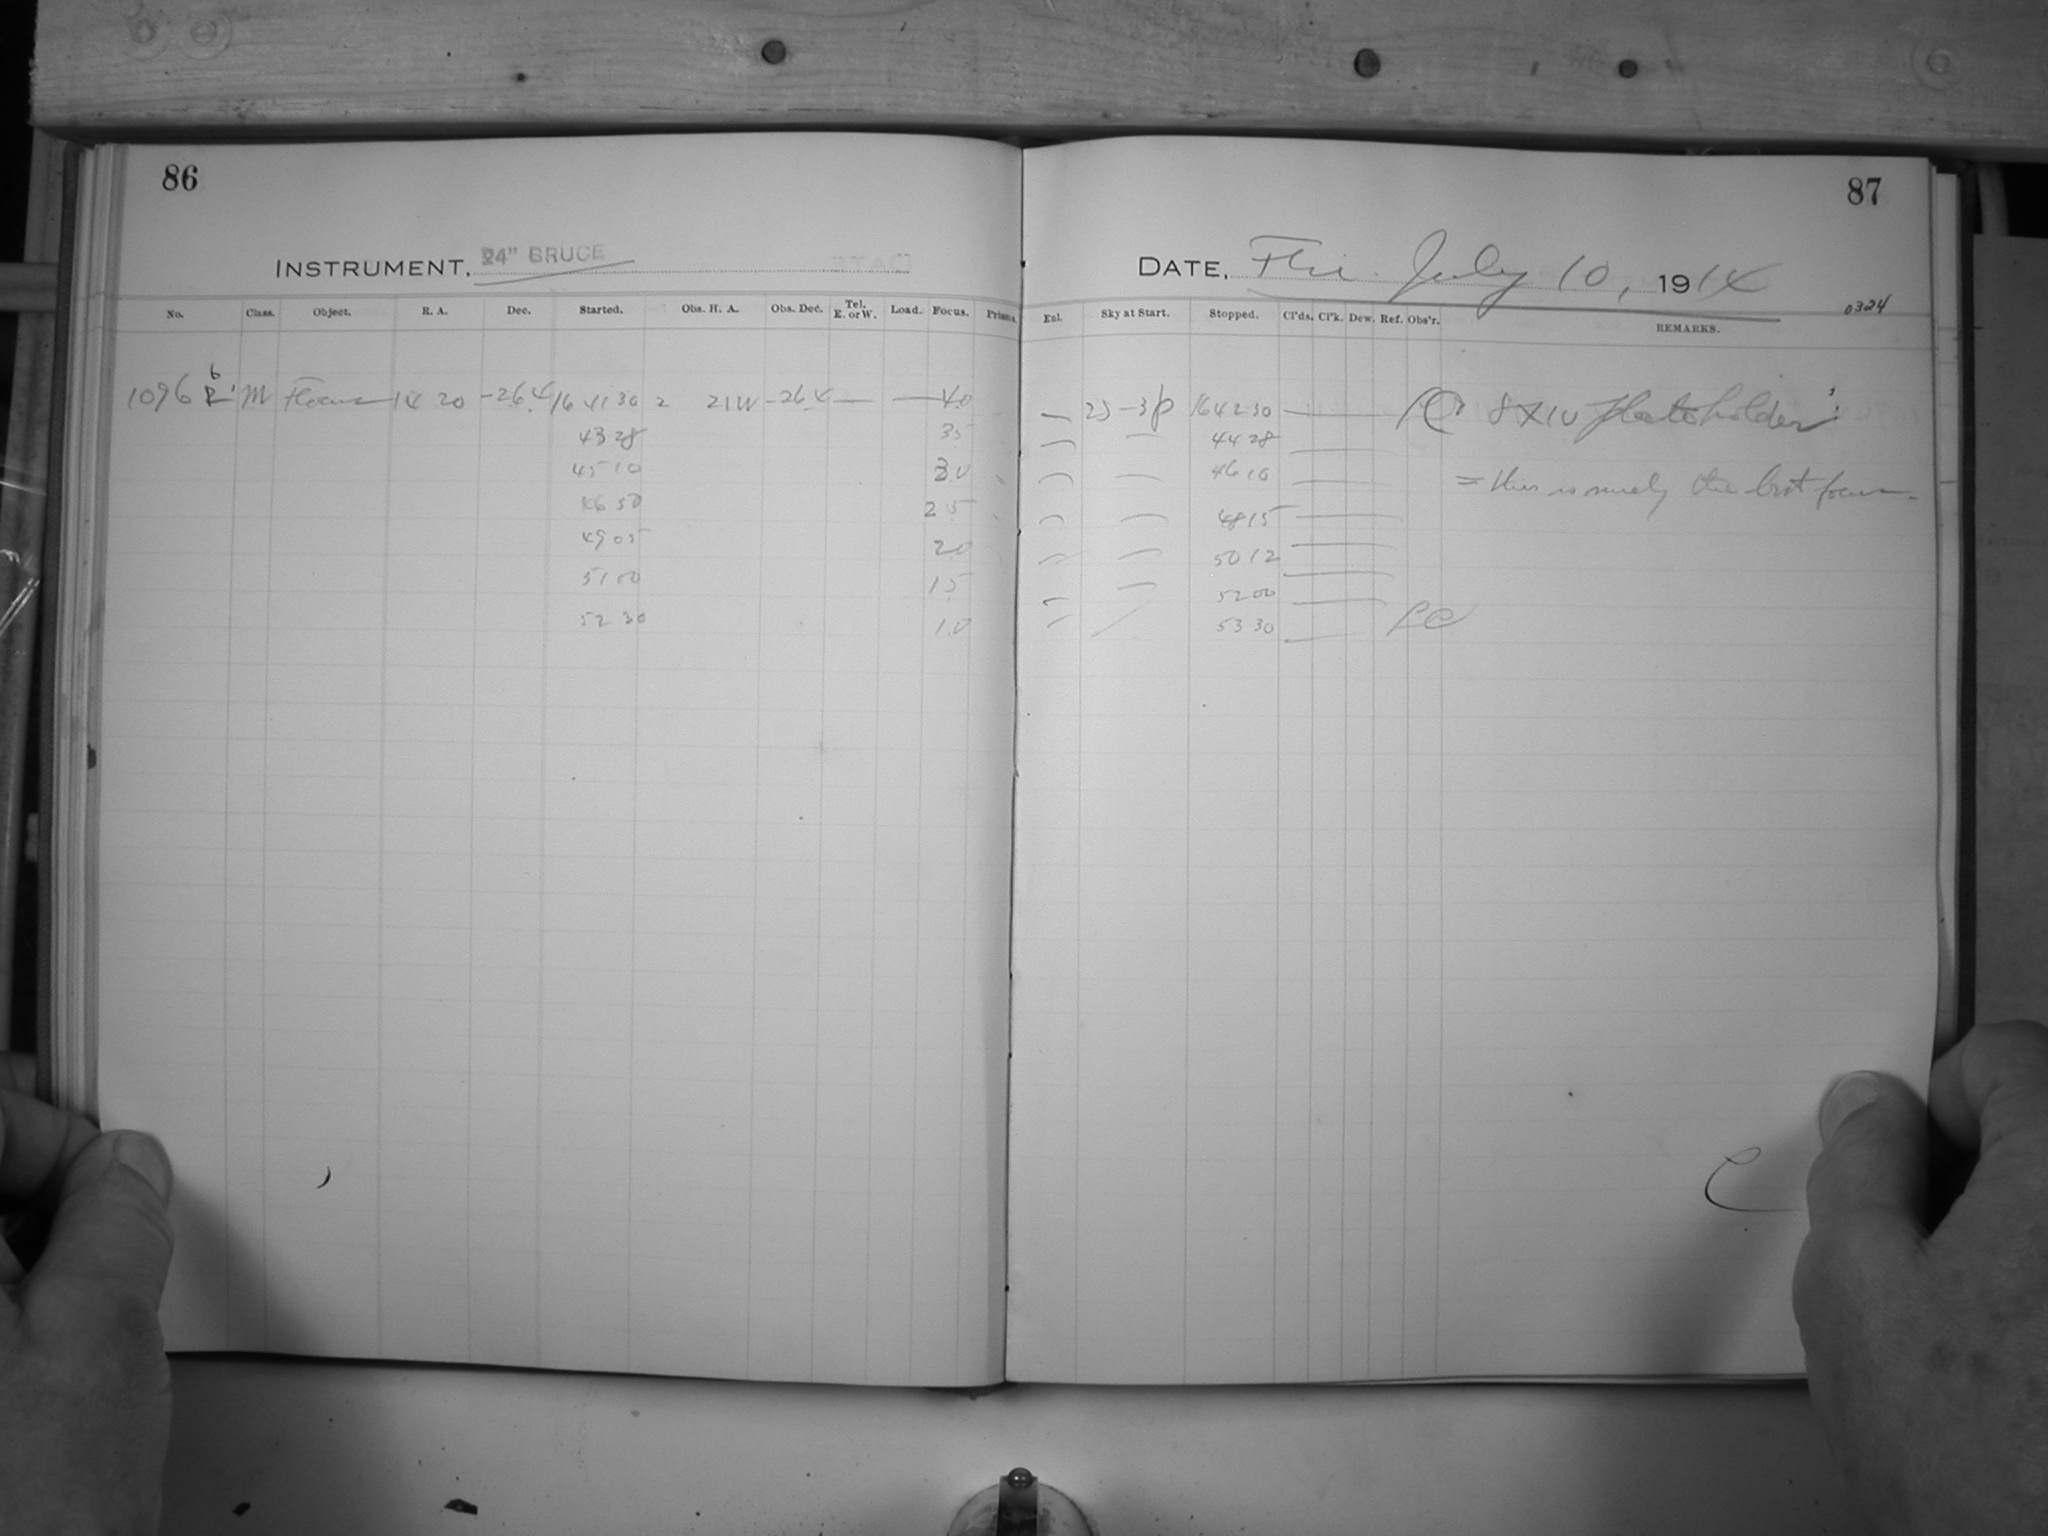 86
INSTRUMENT, 24" BRUCE
No. Class. Object. R. A. Dec. Started. Obs. H. A. Obs. Dec. Tel. E. or W. Load. Focus. Prisms.
b
1096 M Focus 14 20 -26.4 16 41 30 2 21W -26.4 — — 4.0
43 28 3.5
45 10 3.0
46 50 2.5
49 05 2.0
51 00 1.5
52 30 1.0
87
DATE, Fri. July 10, 1914
0324
Enl. Sky at Start. Stopped. Cl'ds. Cl'k. Dew. Ref. Obs'r. REMARKS.
— 16 42 30 — 8x10 plateholder
— — 44 28 —
— — 46 10 — = this is surely the best focus.
— — 48 15 —
— — 50 12 —
— — 52 00 —
53 30 —